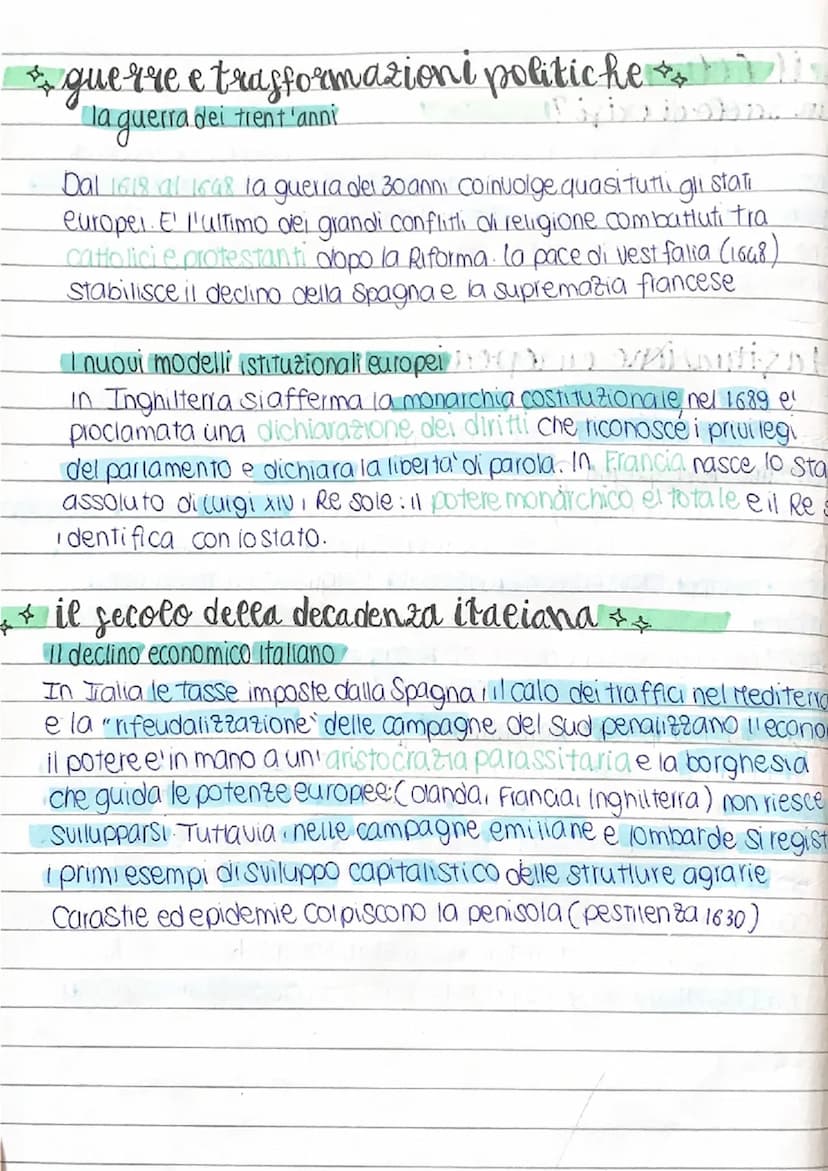 guerre e trasformazioni politiche
la guerra dei trent'anni
Dal 1618 al 1648 la guerra dei 30 anni coinvolge quasi tutti gli stati
europei. E' l'ultimo dei grandi conflitti di religione combattuti tra
cattolici e protestanti dopo la Riforma. la pace di vestfalia (1648)
stabilisce il declino della Spagna e la supremazia francese
I nuovi modelli istituzionali europei
in Inghilterra si afferma la monarchia costituzionale, nel 1689 e'
proclamata una dichiarazione dei diritti che riconosce i privilegi
del parlamento e dichiara la liberta' di parola. In Francia nasce lo sta
assoluto di luigi XIV, Re sole: il potere monarchico e' totale e il Re s
identifica con lo stato.
il secolo della decadenza italiana
Il declino economico italiano
In Italia le tasse imposte dalla Spagna, il calo dei traffici nel Mediterra
e la "rifeudalizzazione" delle campagne del Sud penalizzano l'econo
il potere e' in mano a un' aristocrazia parassitaria e la borghesia
che guida le potenze europee: (Olanda, Francia, Inghilterra) non riesce
svilupparsi. Tuttavia, nelle campagne emiliane e lombarde si regist
i primi esempi di sviluppo capitalistico delle strutture agrarie
Carastie ed epidemie colpiscono la penisola (pestilenza 1630)